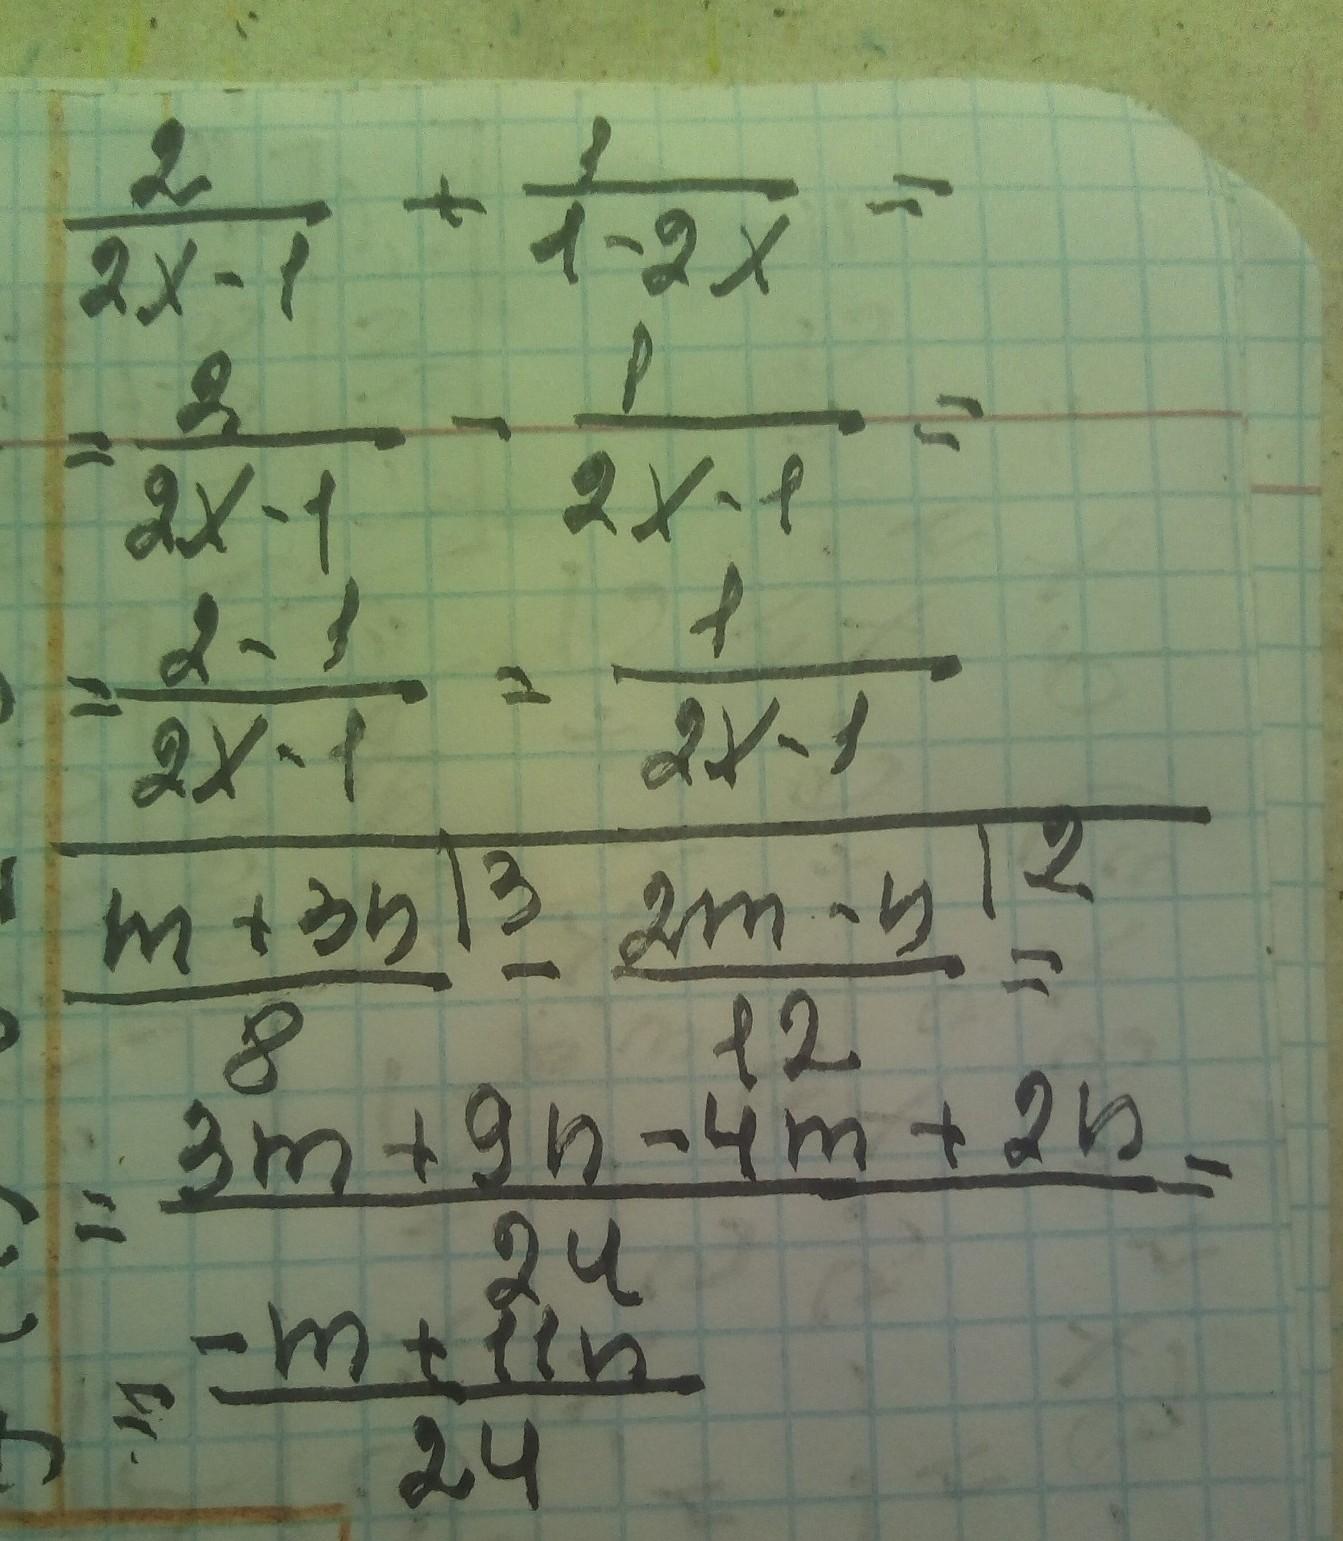 2/(2x-1) + 1/(1-2x) =
= 2/(2x-1) - 1/(2x-1) =
= (2-1)/(2x-1) = 1/(2x-1)
(m+3n)/8 |3 - (2m-n)/12 |2 =
= (3m+9n-4m+2n)/24 =
= (-m+11n)/24